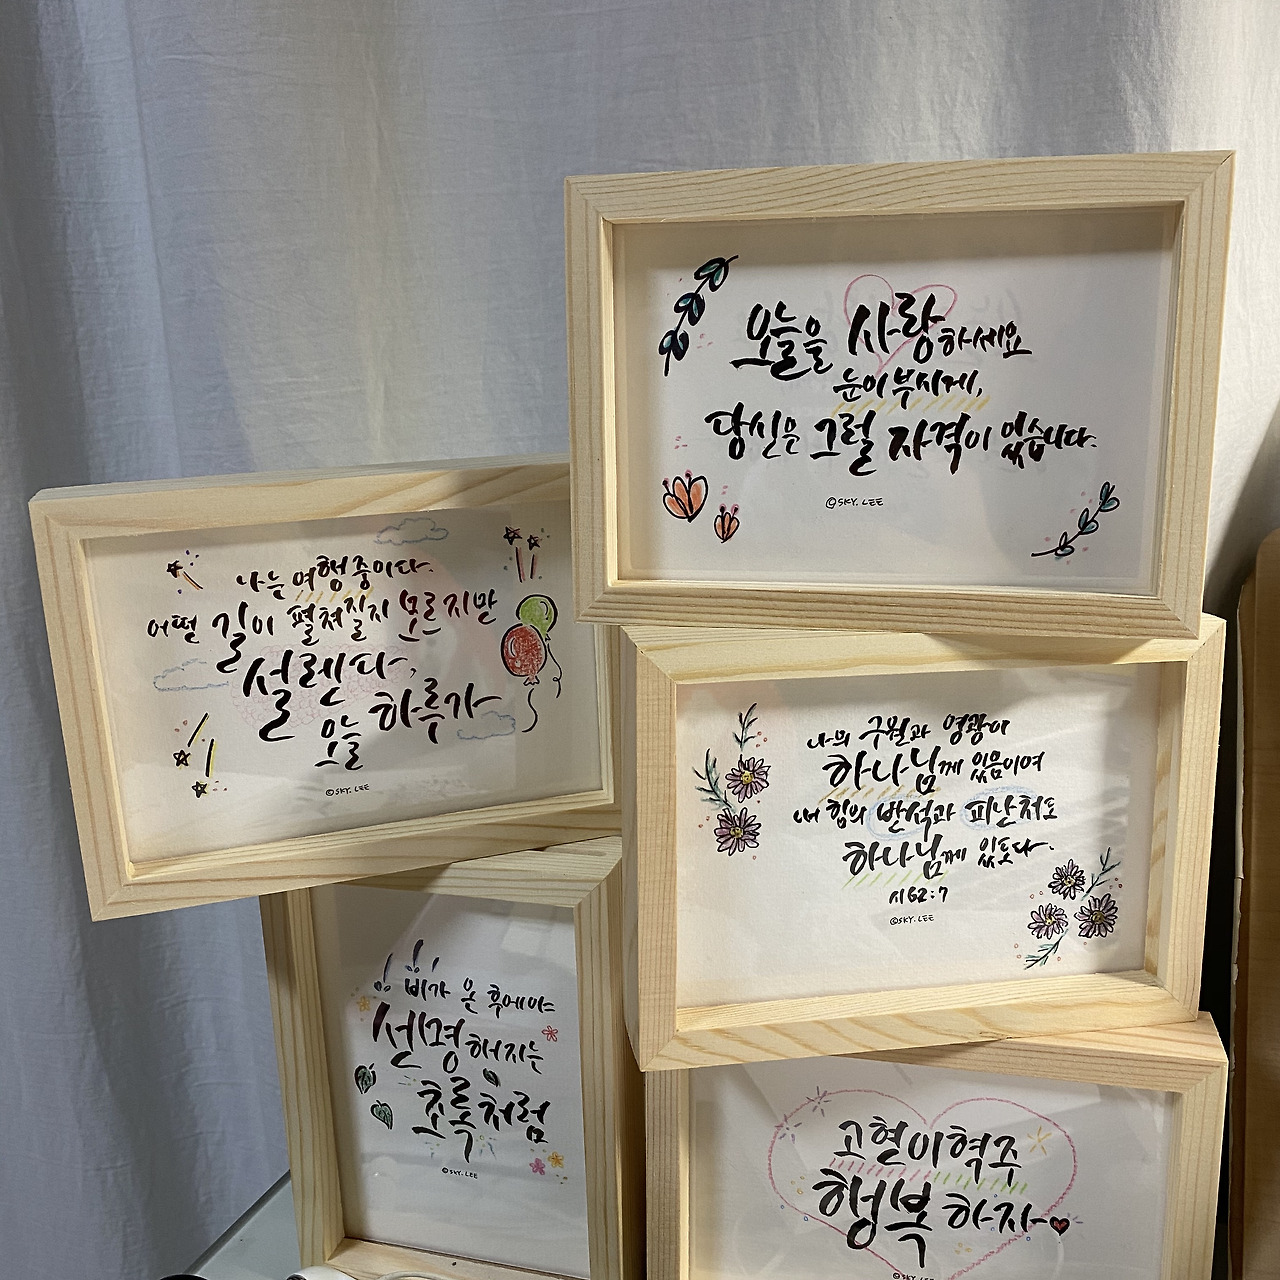 오늘을 사랑하세요
눈이부시게,
당신은 그럴 자격이 있습니다.
©SKY. LEE
나는 여행 중이다.
어떤 길이 펼쳐질지 모르지만
설렌다,
오늘 하루가
©SKY. LEE
나의 구원과 영광이
하나님께 있음이여
내 힘의 반석과 피난처도
하나님께 있도다.
시62:7
©SKY. LEE
비가 온 후에야
선명해지는
초록처럼
©SKY. LEE
행복하자
©SKY. LEE